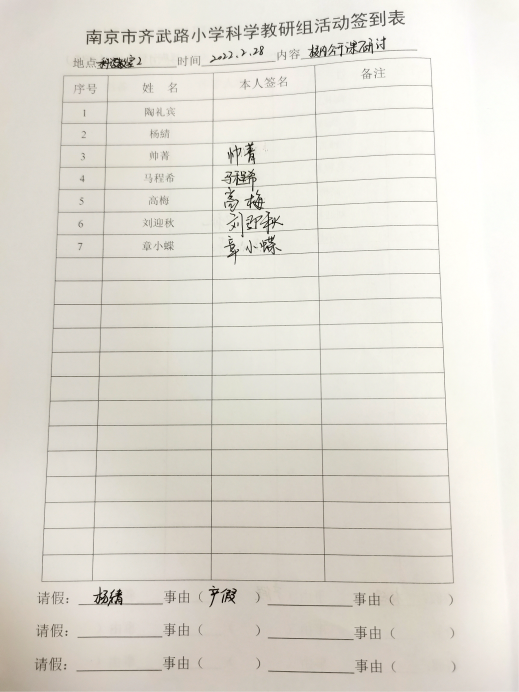 南京市齐武路小学科学教研组活动签到表
地点 科学教室2 时间 2022.2.28 内容 校内公开课研讨
序号 姓 名 本人签名 备注
1 陶礼宾
2 杨婧
3 帅菁 帅菁
4 马程希 马程希
5 高梅 高梅
6 刘迎秋 刘迎秋
7 章小蝶 章小蝶
请假： 杨婧 事由（ 产假 ） 事由（ ）
请假： 事由（ ） 事由（ ）
请假： 事由（ ） 事由（ ）